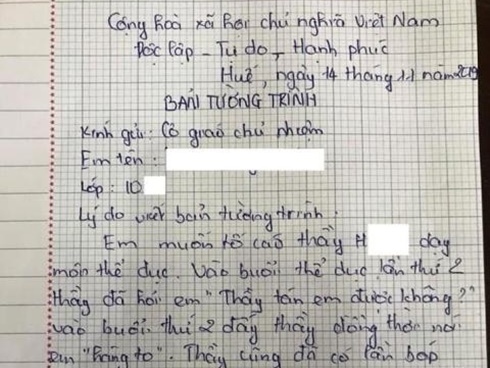 Cộng hoà xã hội chủ nghĩa Việt Nam
Độc lập - Tự do - Hạnh phúc
Huế, ngày 14 tháng 11 năm 2019
BẢN TƯỜNG TRÌNH
Kính gửi: Cô giáo chủ nhiệm
Em tên :
Lớp : 10
Lý do viết bản tường trình :
Em muốn tố cáo thầy H dạy
môn thể dục. Vào buổi thể dục lần thứ 2
thầy đã hỏi em "Thầy tán em được không?"
vào buổi thứ 2 đấy thầy đồng thời nói
em "hàng to". Thầy cũng đã có lần bóp